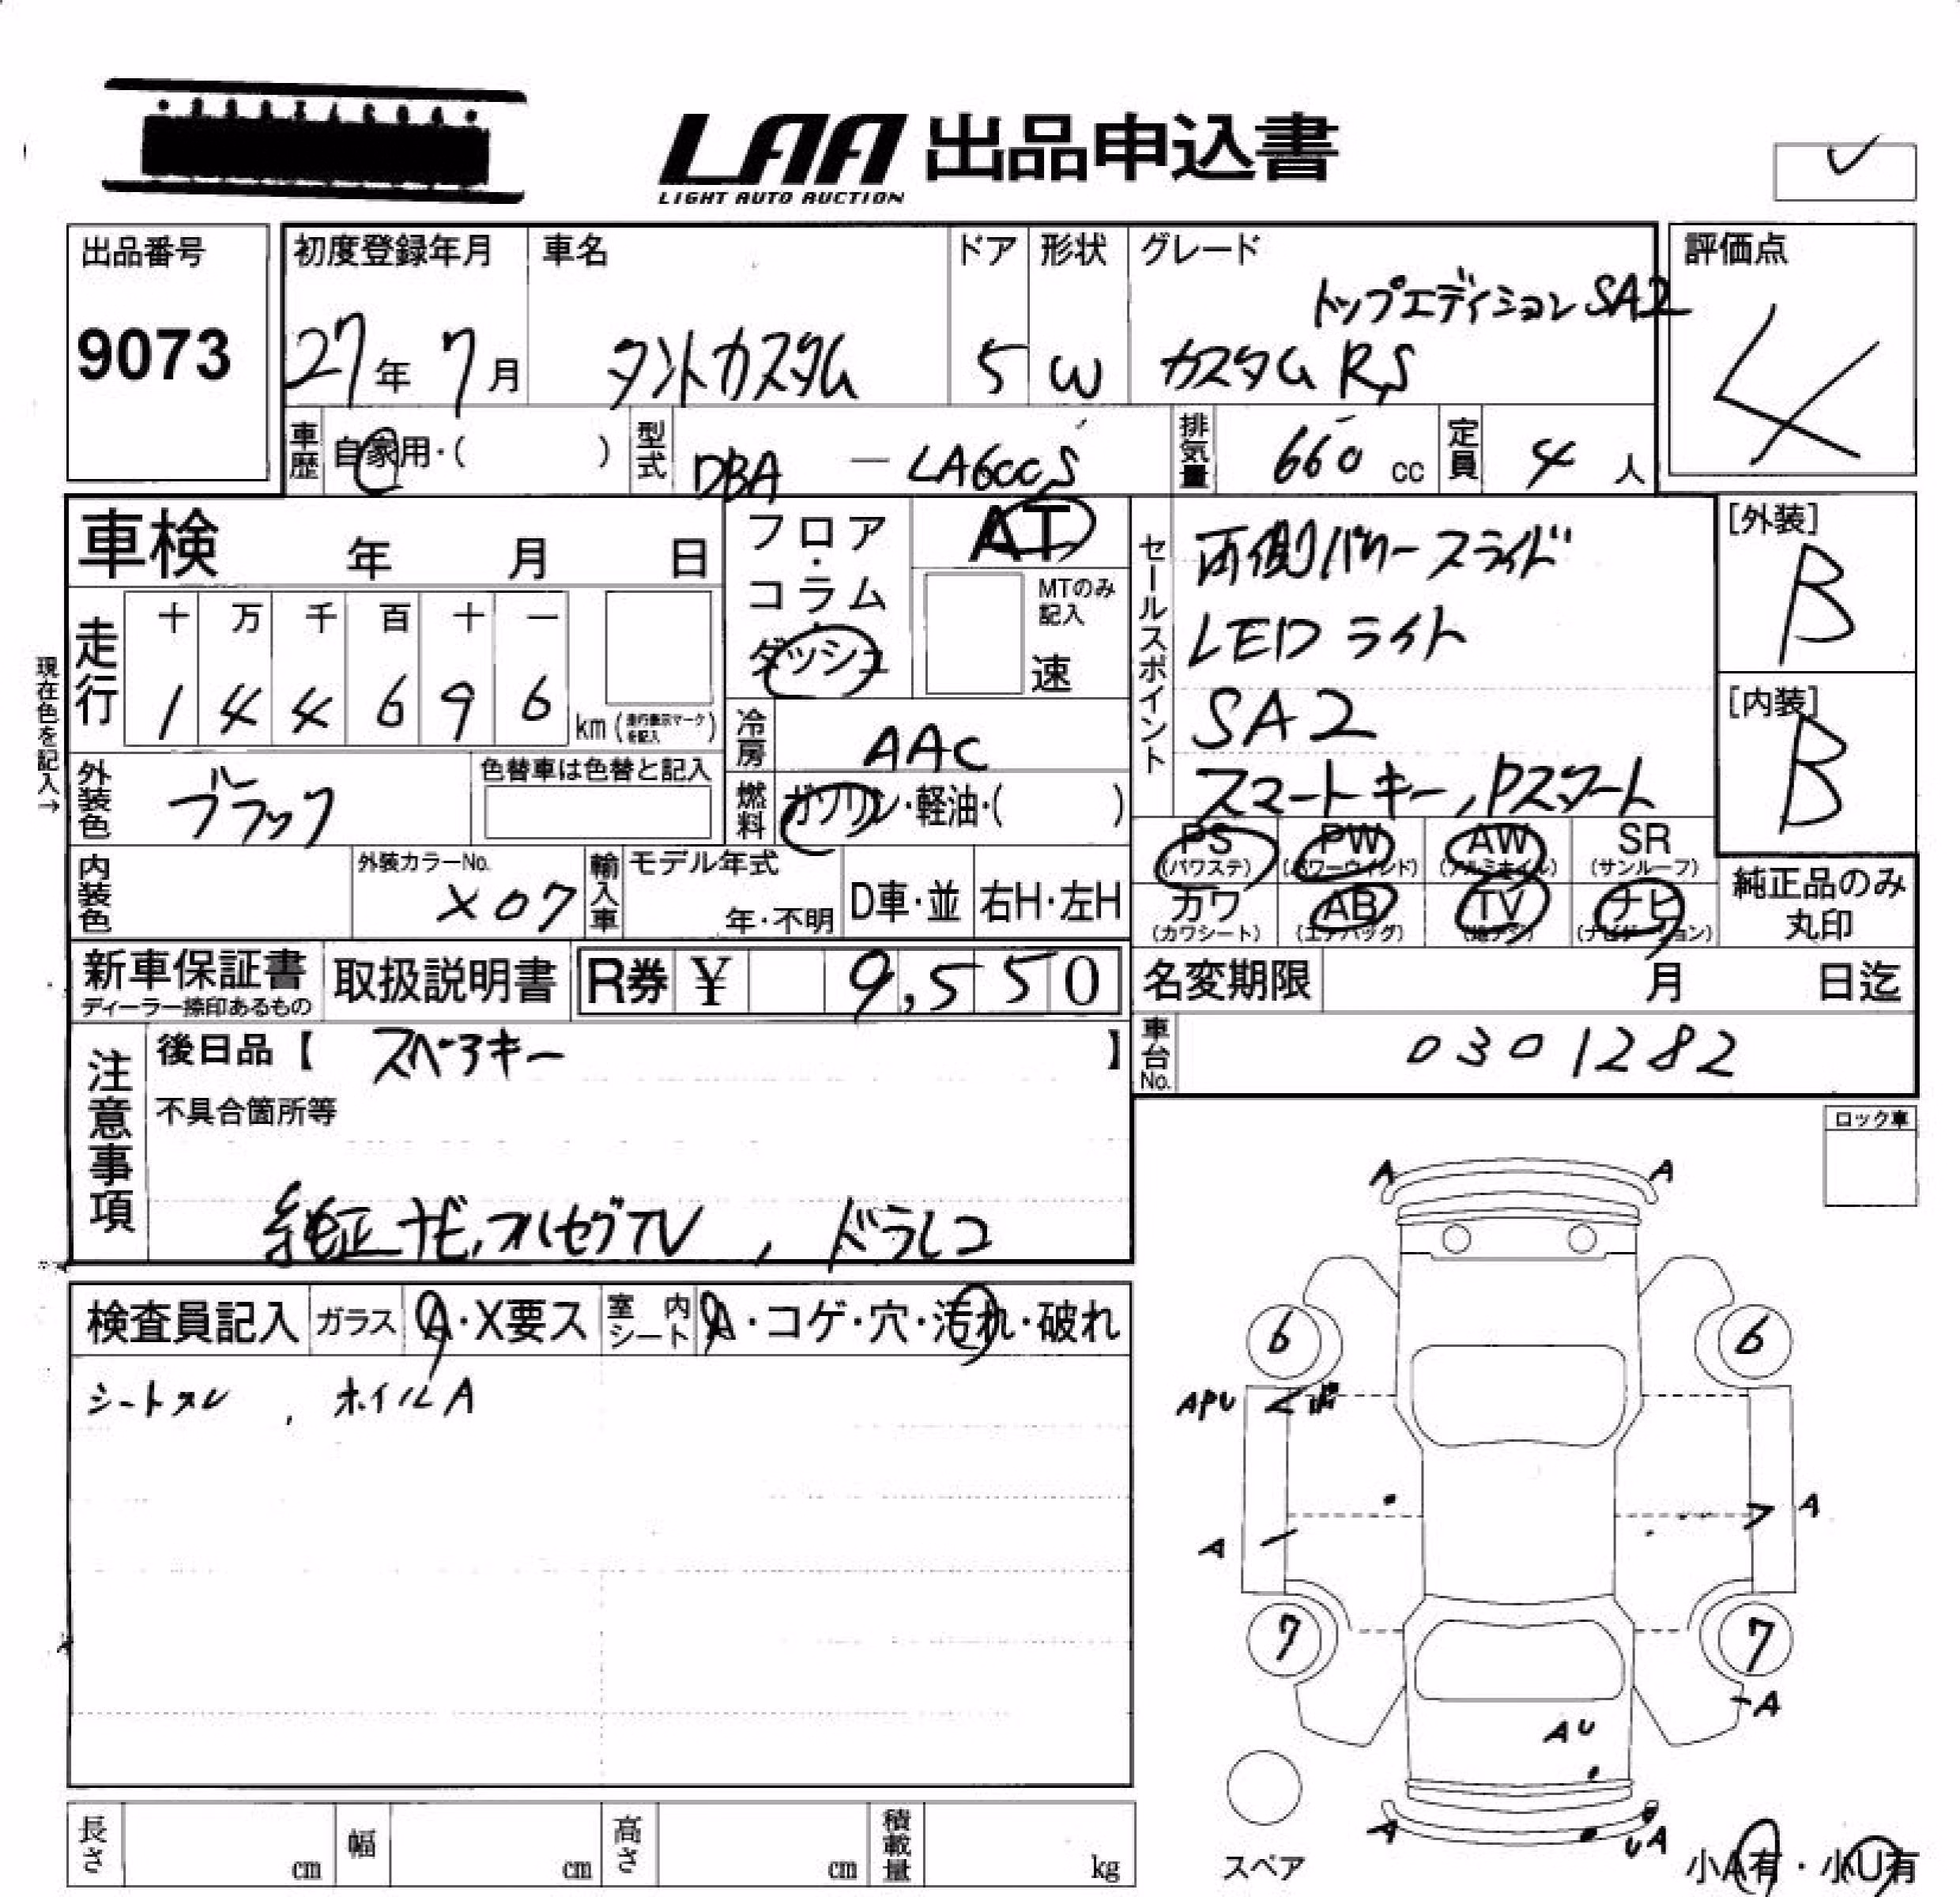 LAA 出品申込書
LIGHT AUTO AUCTION
出品番号
9073
初度登録年月 車名 ドア 形状 グレード
トップエディション SA2
27年 7月 タントカスタム 5 W カスタム RS
評価点
4
車歴 自家用・( ) 型式 DBA — LA600S 排気量 660 cc 定員 4 人
車検 年 月 日
フロア・コラム・ダッシュ
AT
MTのみ記入
速
走行 十 万 千 百 十 一
1 4 4 6 9 6 km (走行表示マークを記入)
現在色を記入→
冷房 AAC
外装色 ブラック 色替車は色替と記入
燃料 ガソリン・軽油・( )
セールスポイント
両側パワースライド
LED ライト
SA2
スマートキー, Pスタート
[外装]
B
[内装]
B
PS (パワステ) PW (パワーウインド) AW (アルミホイル) SR (サンルーフ)
カワ (カワシート) AB (エアバッグ) TV (地デジ) ナビ (ナビゲーション)
純正品のみ丸印
内装色 外装カラーNo. X07 輸入車 モデル年式 年・不明 D車・並 右H・左H
新車保証書 ディーラー捺印あるもの 取扱説明書 R券 ¥ 9,550
名変期限 月 日迄
車台No. 0301282
注意事項
後日品【 スペアキー 】
不具合箇所等
純正ナビ, フルセグTV , ドラレコ
ロック車
検査員記入 ガラス A・X要ス 室内シート A・コゲ・穴・汚れ・破れ
シートスレ , ホイルA
A A
6 6
APU
A
A
7 7
A
AU
A UA
スペア
小A有・小U有
長さ cm 幅 cm 高さ cm 積載量 kg